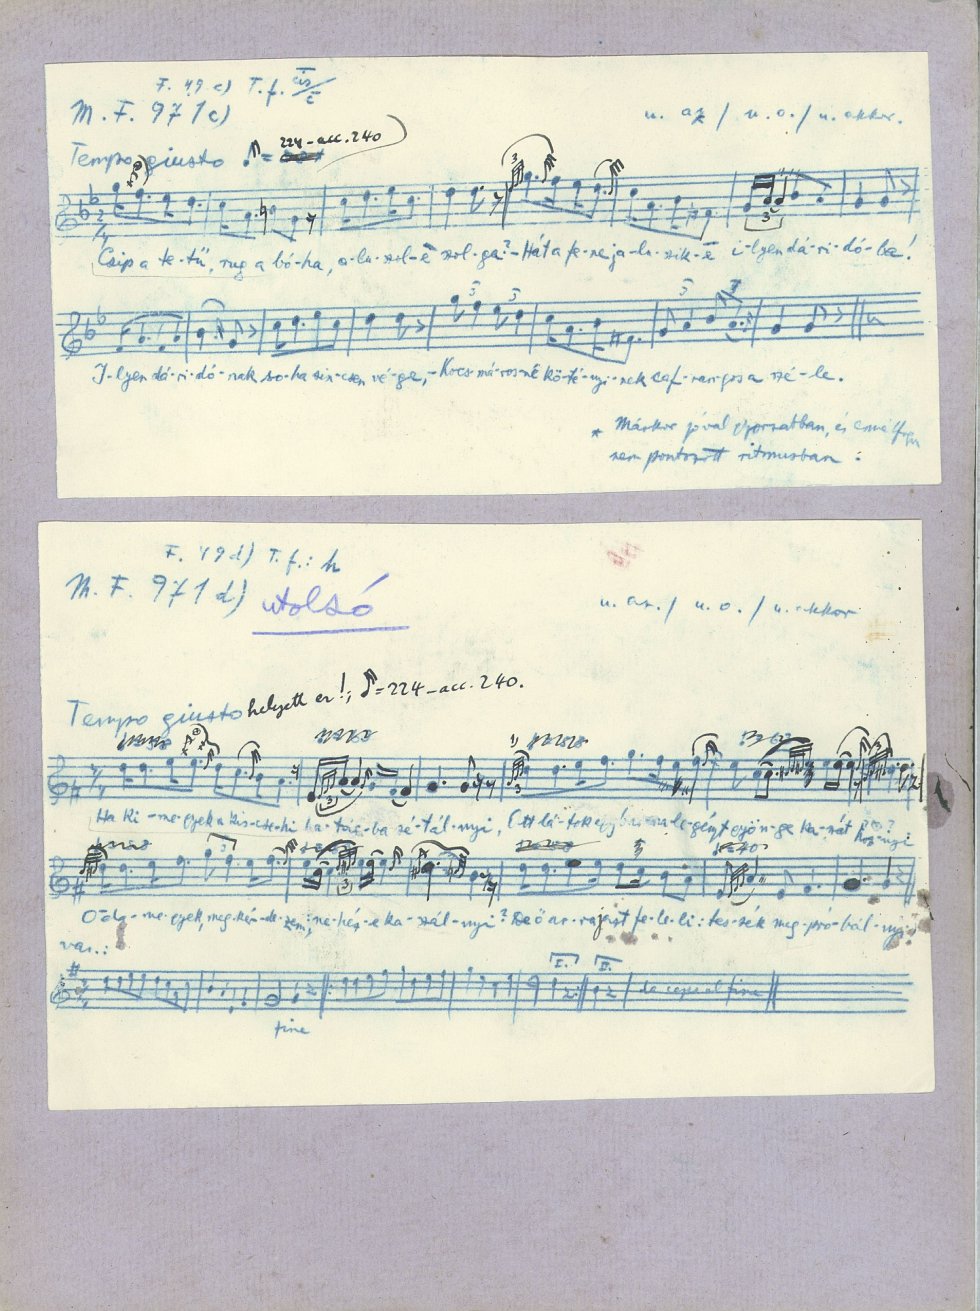 F. 49 c) T.f. cis/c
M. F. 971 c)
u. az / u. o. / u. akkor.
Tempo giusto = 224-acc. 240
Csip a te-tű, rug a bó-ha, a-lu-szol-ē szol-ga? - Hát a fe-ne ja-lu-szik-ē i-lyen dá-ri-dó-ba!
I-lyen dá-ri-dó-nak so-ha sin-csen vé-ge, - Kocs-má-ros-né kö-té-nyi-nek caf-rangos a szé-le.
* Máskor jóval gyorsabban, és
nem pontozott ritmusban :
F. 49 d) T.f.: h
M. F. 971 d) utolsó
u. az. / u. o. / u. akkor
Tempo giusto helyett ez!; = 224-acc. 240.
Ha ki-me-gyek a kis-cse-hi ha-tár-ba sé-tál-nyi, Ott lá-tok egy bar-na le-gényt gyön-ge ka-szát
O-da-me-gyek, meg-kér-de-zem, ne-héz-e ka-szál-nyi? De ő az-rajnst fe-le-li: tes-sék meg-pró-bál-nyi
var.:
I. II.
da capo al fine
fine